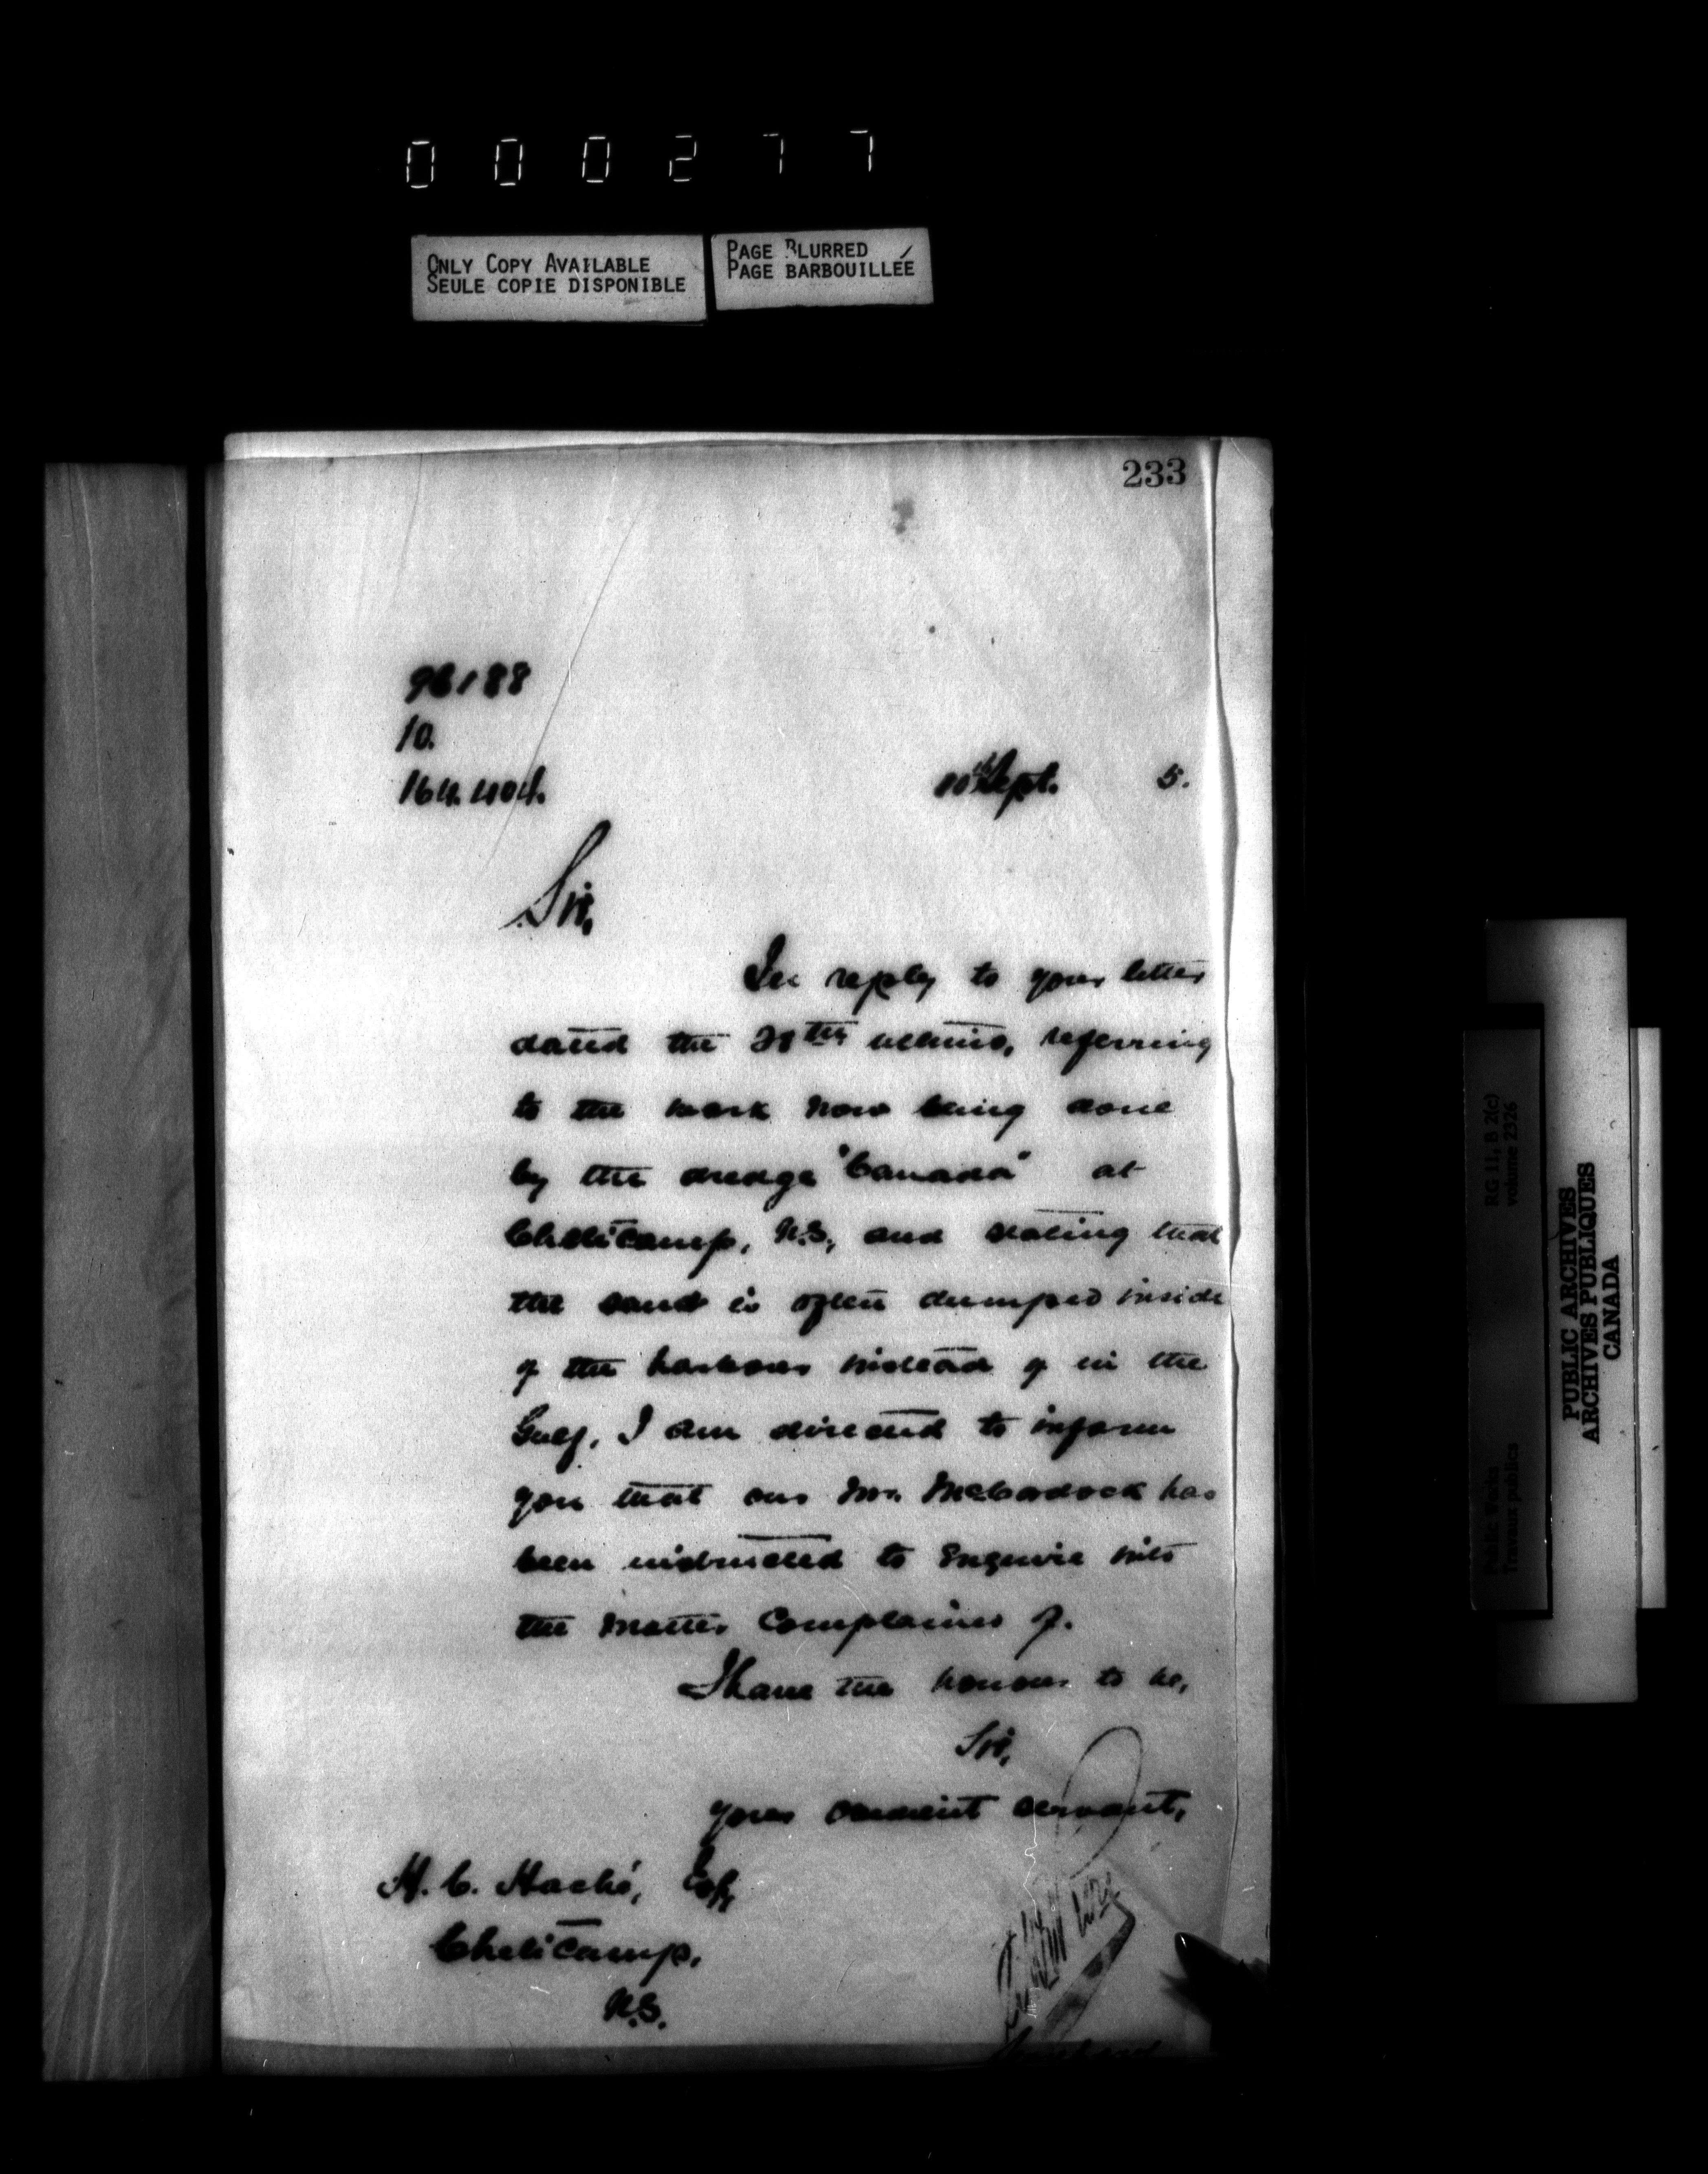 000277
ONLY COPY AVAILABLE
SEULE COPIE DISPONIBLE
PAGE BLURRED
PAGE BARBOUILLÉE
233
96188
10.
164.404.
10th Sept. 5.
Sir,
In reply to your letter
dated the 28th ultimo, referring
to the work now being done
by the dredge "Canada" at
Cheticamp, N.S., and stating that
the sand is often dumped inside
of the harbour instead of in the
Gulf, I am directed to inform
you that our Mr. McCordock has
been instructed to enquire into
the matter complained of.
I have the honour to be,
Sir,
your obedient servant,
H. C. Haché, Esq,
Cheticamp,
N.S.
Public Works
Travaux publics
RG 11, B 2(c)
volume 2326
PUBLIC ARCHIVES
ARCHIVES PUBLIQUES
CANADA